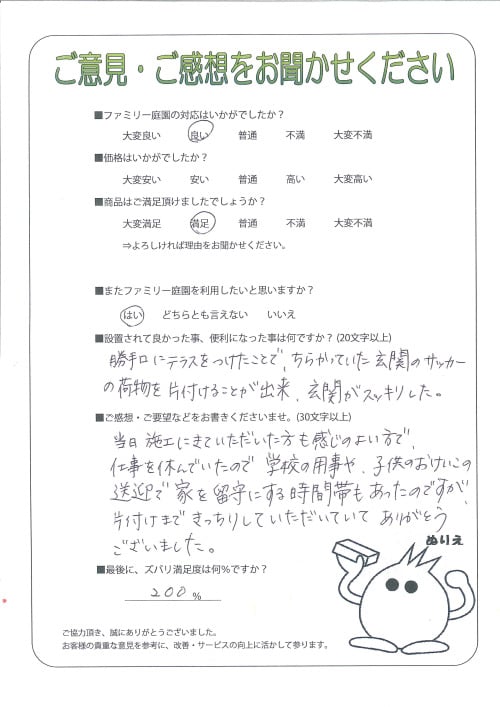 ご意見・ご感想をお聞かせください
■ファミリー庭園の対応はいかがでしたか？
大変良い 良い 普通 不満 大変不満
■価格はいかがでしたか？
大変安い 安い 普通 高い 大変高い
■商品はご満足頂けましたでしょうか？
大変満足 満足 普通 不満 大変不満
⇒よろしければ理由をお聞かせください。
■またファミリー庭園を利用したいと思いますか？
はい どちらとも言えない いいえ
■設置されて良かった事、便利になった事は何ですか？(20文字以上)
勝手口にテラスをつけたことで、ちらかっていた玄関のサッカー
の荷物を片付けることが出来、玄関がスッキリした。
■ご感想・ご要望などをお書きくださいませ。(30文字以上)
当日施工にきていただいた方も感じのよい方で、
仕事を休んでいたので学校の用事や、子供のおけいこの
送迎で家を留守にする時間帯もあったのですが
片付けまできっちりしていただいていてありがとう
ございました。
ぬりえ
■最後に、ズバリ満足度は何％ですか？
200 %
ご協力頂き、誠にありがとうございました。
お客様の貴重な意見を参考に、改善・サービスの向上に活かして参ります。